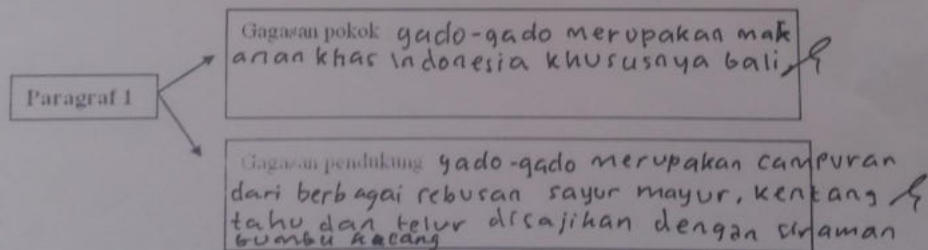 Gagasan pokok gado-gado merupakan mak
anan khas indonesia khususnya bali,
Paragraf 1
Gagasan pendukung gado-gado merupakan campuran
dari berbagai rebusan sayur mayur, kentang
tahu dan telur disajikan dengan siraman
bumbu kacang